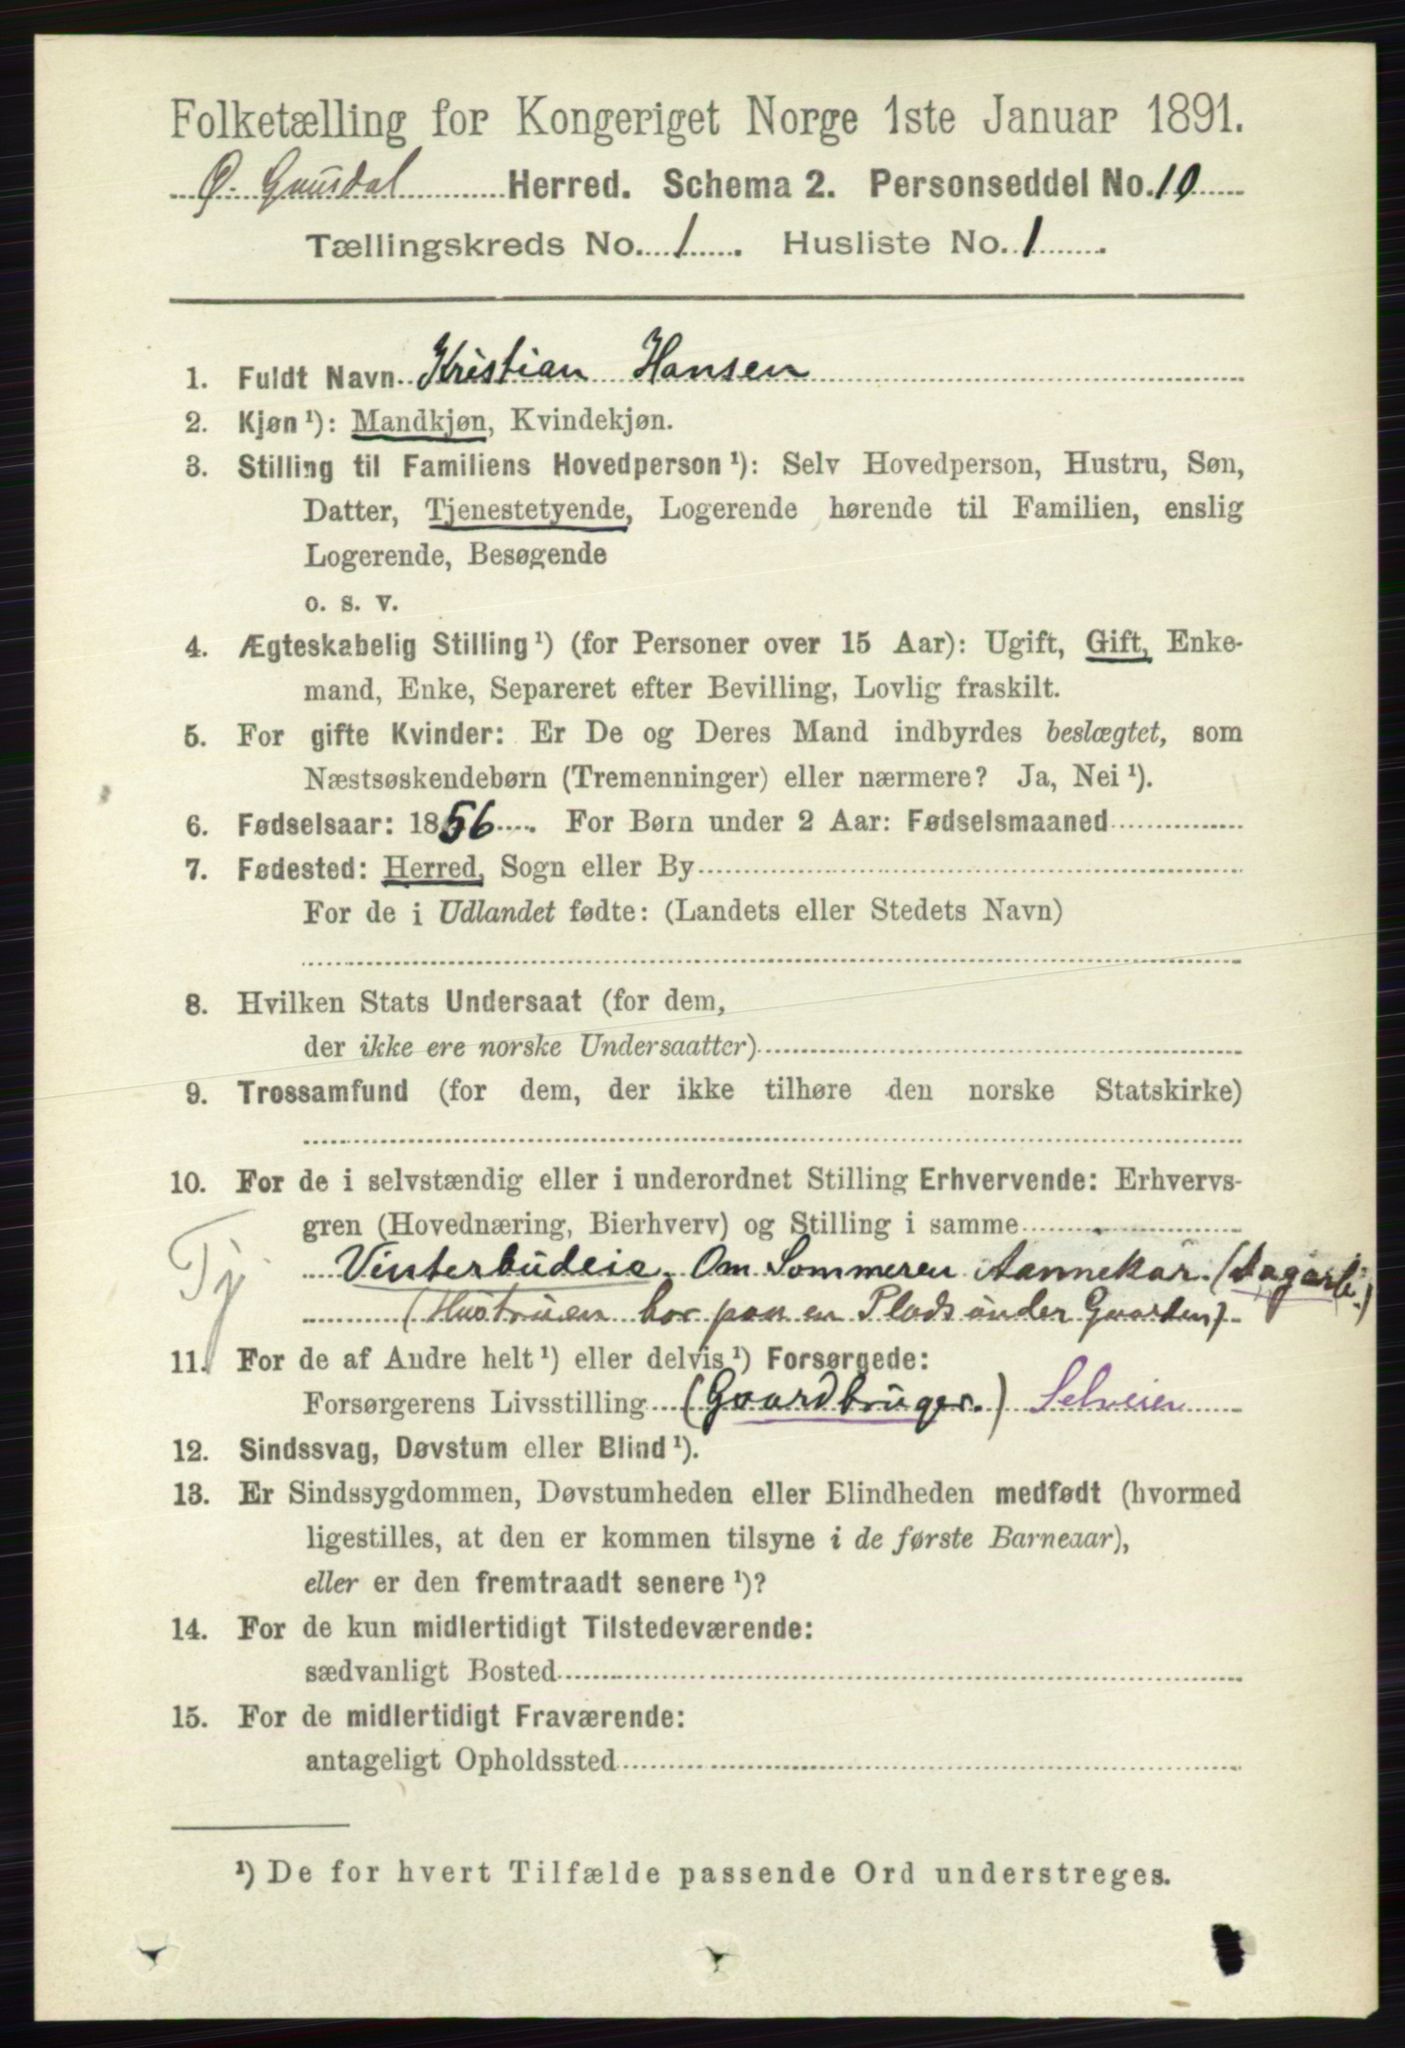 Folketælling for Kongeriget Norge 1ste Januar 1891.
Ø. Gausdal Herred. Schema 2. Personseddel No. 10
Tællingskreds No. 1. Husliste No. 1.
1. Fuldt Navn Kristian Hansen
2. Kjøn ¹): Mandkjøn, Kvindekjøn.
3. Stilling til Familiens Hovedperson ¹): Selv Hovedperson, Hustru, Søn,
Datter, Tjenestetyende, Logerende hørende til Familien, enslig
Logerende, Besøgende
o. s. v.
4. Ægteskabelig Stilling ¹) (for Personer over 15 Aar): Ugift, Gift, Enke-
mand, Enke, Separeret efter Bevilling, Lovlig fraskilt.
5. For gifte Kvinder: Er De og Deres Mand indbyrdes beslægtet, som
Næstsøskendebørn (Tremenninger) eller nærmere? Ja, Nei ¹).
6. Fødselsaar: 1856. For Børn under 2 Aar: Fødselsmaaned
7. Fødested: Herred, Sogn eller By
For de i Udlandet fødte: (Landets eller Stedets Navn)
8. Hvilken Stats Undersaat (for dem,
der ikke ere norske Undersaatter)
9. Trossamfund (for dem, der ikke tilhøre den norske Statskirke)
10. For de i selvstændig eller i underordnet Stilling Erhvervende: Erhvervs-
gren (Hovednæring, Bierhverv) og Stilling i samme
Tj Vinterbudeie. Om Sommeren Aannekar. (Dagarb.)
(Hustruen bor paa en Plads under Gaarden)
11. For de af Andre helt ¹) eller delvis ¹) Forsørgede:
Forsørgerens Livsstilling (Gaardbruger.) Selveier
12. Sindssvag, Døvstum eller Blind ¹).
13. Er Sindssygdommen, Døvstumheden eller Blindheden medfødt (hvormed
ligestilles, at den er kommen tilsyne i de første Barneaar),
eller er den fremtraadt senere ¹)?
14. For de kun midlertidigt Tilstedeværende:
sædvanligt Bosted
15. For de midlertidigt Fraværende:
antageligt Opholdssted
¹) De for hvert Tilfælde passende Ord understreges.